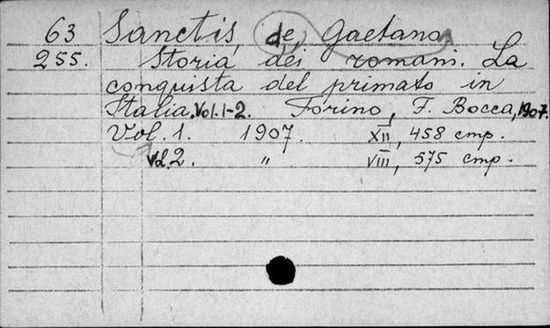 63 Sanctis, de, Gaetano
255. Storia dei romani. La
conquista del primato in
Italia. Vol. 1-2. Torino, F. Bocca, 1907.
Vol. 1. 1907. XII, 458 cmp.
Vol. 2. " VIII, 575 cmp.